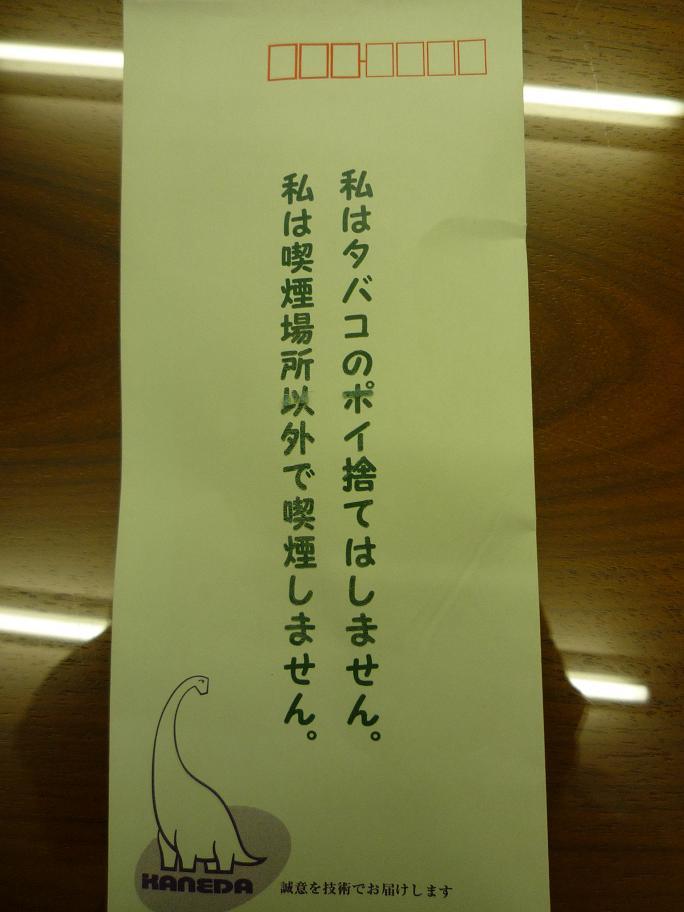 私はタバコのポイ捨てはしません。
私は喫煙場所以外で喫煙しません。
KANEDA
誠意を技術でお届けします